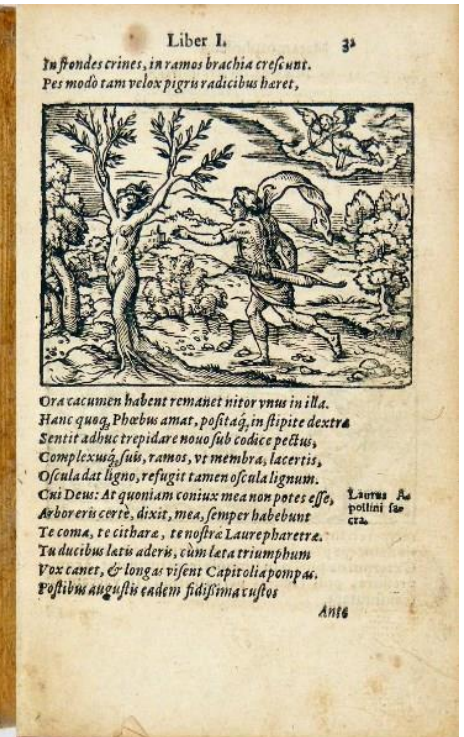 Liber I. 32
In frondes crines, in ramos brachia crescunt.
Pes modò tam velox pigris radicibus hæret,
Ora cacumen habent remanet nitor vnus in illa.
Hanc quoq; Phœbus amat, positaq́; in stipite dextra
Sentit adhuc trepidare nouo sub codice pectus,
Complexusq́; suis, ramos, vt membra, lacertis,
Oscula dat ligno, refugit tamen oscula lignum.
Cui Deus: At quoniam coniux mea non potes esse,
Arbor eris certè, dixit, mea, semper habebunt
Te comæ, te citharæ, te nostræ Laure pharetræ.
Tu ducibus latis aderis, cùm læta triumphum
Vox canet, & longas visent Capitolia pompas.
Postibus augustis eadem fidissima custos
Laurus A-
pollini sa-
cra.
Ante